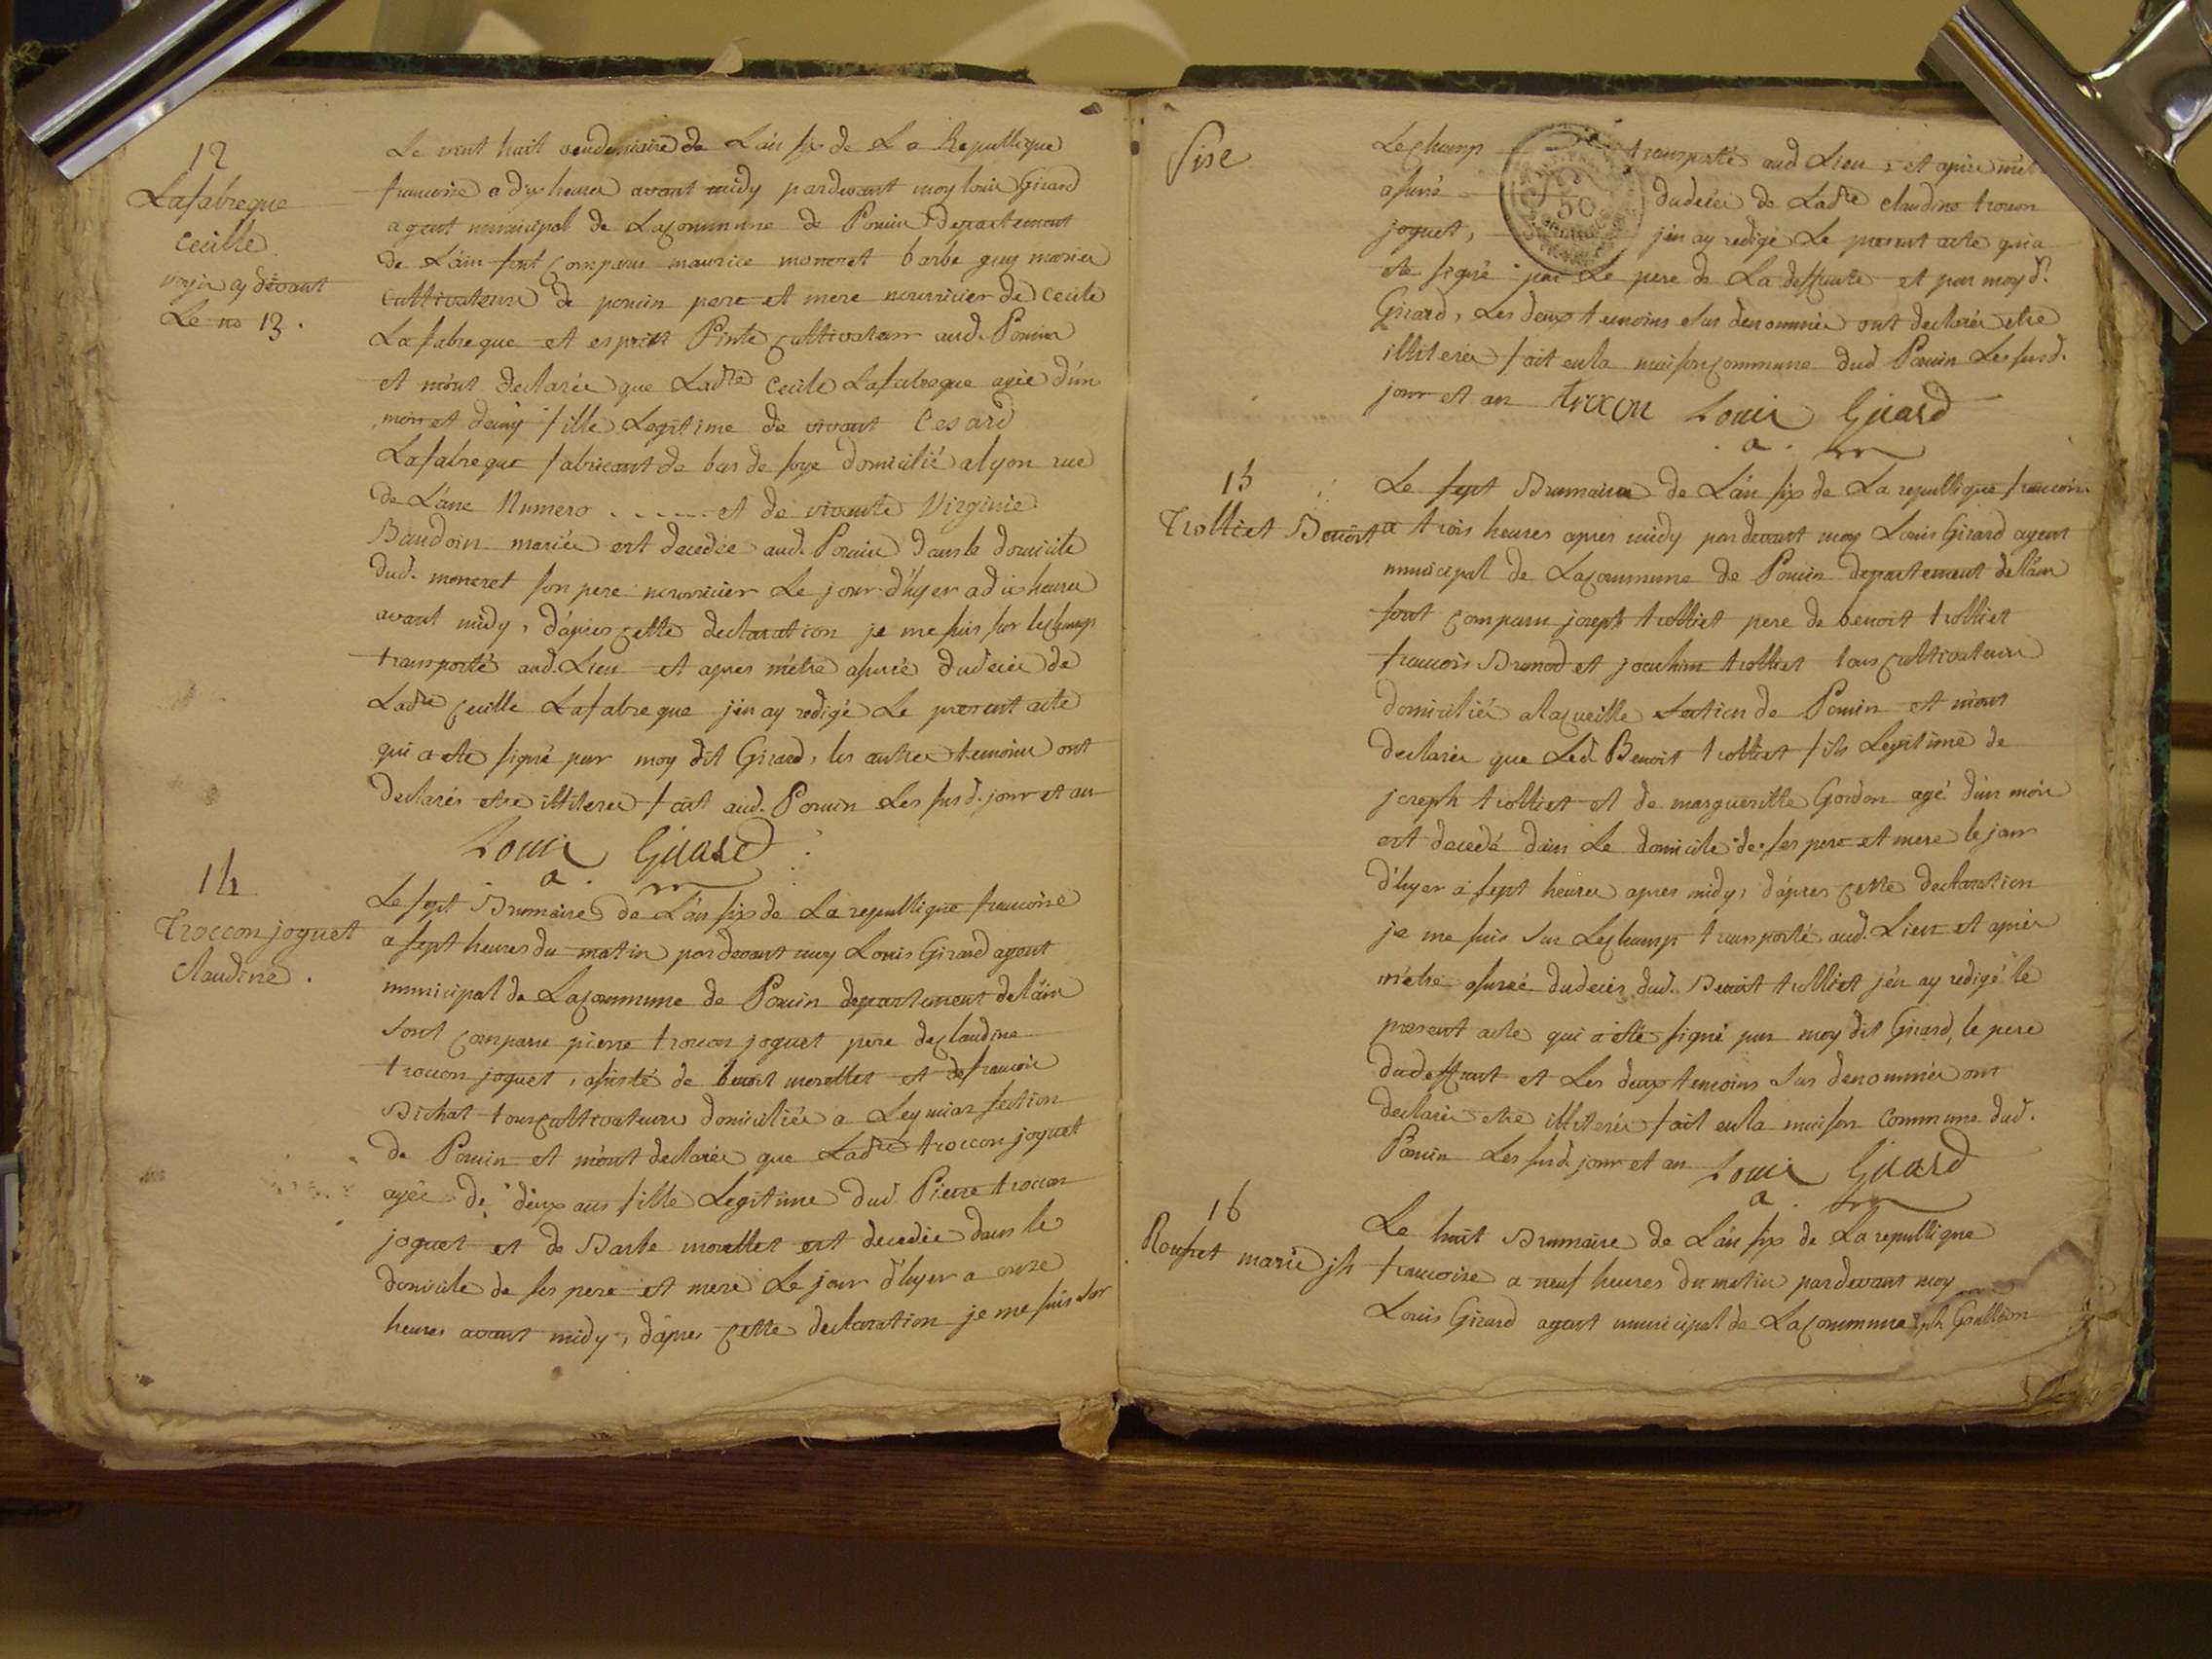 12
Lafabregue
Cecille
voyir cy devant
Le no 13.
Le vint huit vendemiaire de L'an six de La Republique
francoise a dix heures avant midy pardevant moy louis Girard
agent municipal de Lacommune de Poncin Departement
de L'ain sont comparus maurice moneret barbe guy mariés
cultivateurs de poncin pere et mere nourricier de Cecile
Lafabregue et esprit Pinte cultivateur aud. Poncin
et m'ont declarée que Ladte Cecile Lafabregue agée d'un
mois et demy fille Legitime de vivant Cesard
Lafabregue fabricant de bas de soye domicilié a lyon rue
de L'ane Numero . . . . . et de vivante Virginie
Baudoin mariés est decedée aud. Poncin dans le domicile
dud. moneret son pere nourricier Le jour d'hyer a dix heures
avant midy, d'apres cette declaration je me suis sur lechamp
transporté aud. Lieu et apres m'etre asuré dudecès de
Ladte cecille Lafabregue j'en ay redigé Le present acte
qui a ete signé par moy dit Girard, les autres temoins ont
declarés etre illiterés fait aud. Poncin Les susd. jour et an
Louis Girard
a. m
14
Troccon joguet
Claudine.
Le sept Brumaire de L'an six de La republique francoise
a sept heures du matin pardevant moy Louis Girard agent
municipal de Lacommune de Poncin departement de l'ain
sont comparu pierre trocon joguet pere de claudine
trocon joguet, asisté de benoit morellet et de francois
Bichat tous cultivateurs domiciliés a Leymiat section
de Poncin et m'ont declarés que Ladte troccon joguet
agée de deux ans fille Legitime dud. Pierre trocon
joguet et de Barbe morellet est decedée dans le
domicile de ses pere et mere Le jour d'hyer a onze
heures avant midy, d'apres cette declaration je me suis sur
Sixe
Lechamp transporté aud Lieu, et apres m'etre
asuré dudecès de Ladte claudine trocon
joguet, j'en ay redigé Le present acte qui a
ete signé par Le pere de La deffunte et par moy dt
50
Girard, Les deux temoins sus denommés ont declarés etre
illiterés fait en la maison commune dud Poncin Les susd.
jour et an trocon Louis Girard
a. m
15
Trolliet Benoit
Le sept Brumaire de L'an six de La republique francoise
a trois heures apres midy pardevant moy Louis Girard agent
municipal de Lacommune de Poncin departement de l'ain
sont comparu joseph trolliet pere de benoit trolliet
francois Brunod et joachim trolliet tous cultivateurs
domiciliés alacueille section de Poncin et m'ont
declarés que Led. Benoit trolliet fils Legitime de
joseph trolliet et de margueritte Gordon agé d'un mois
est decedé dans Le domicile de ses pere et mere le jour
d'hyer a sept heures apres midy, d'apres cette declaration
je me suis sur Lechamp transporté aud. Lieu et apres
m'etre asuré dudecès dud. Benoit trolliet j'en ay redigé le
present acte qui a été signé par moy dit Girard, le pere
du deffunt et Les deux temoins sus denommés ont
declarés etre illiterés fait en la maison Commune dud.
Poncin Les susd. jour et an Louis Girard
a. m
16
Rousset marie jh
Le huit Brumaire de L'an six de La republique
francoise a neuf heures du matin pardevant moy
Louis Girard agent municipal de Lacommune